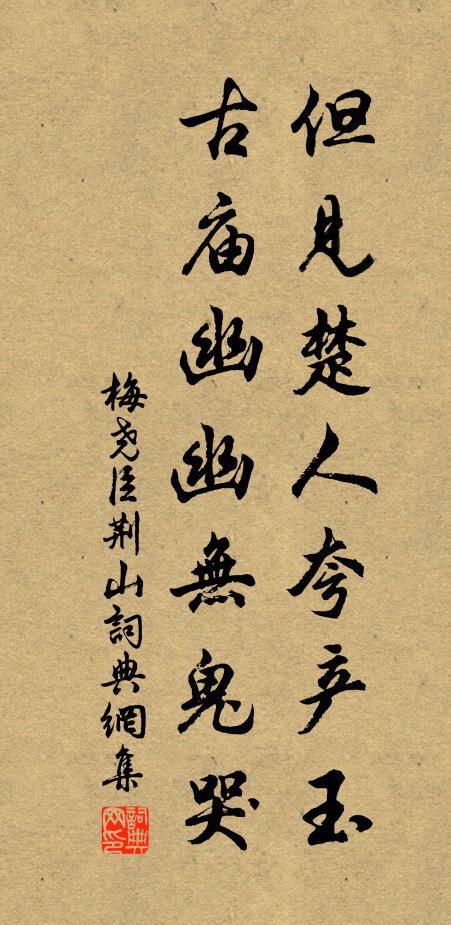 但见楚人夸产玉
古庙幽幽無鬼哭
梅尧臣荆山詞典網集
詞典网印